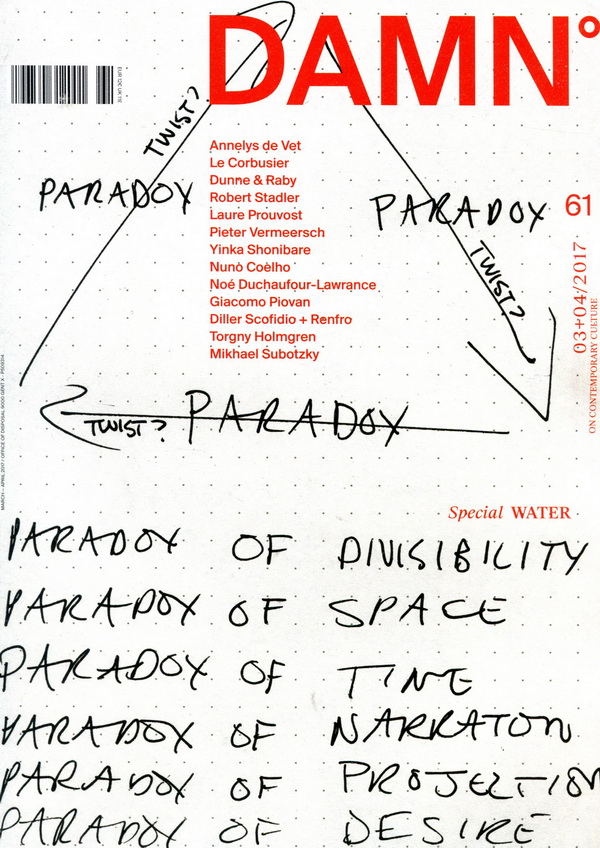 DAMN°
TWIST?
Annelys de Vet
Le Corbusier
Dunne & Raby
PARADOX
Robert Stadler
PARADOX
61
Laure Prouvost
Pieter Vermeersch
Yinka Shonibare
TWIST?
Nuno Coelho
Noé Duchaufour-Lawrance
Giacomo Piovan
Diller Scofidio + Renfro
Torgny Holmgren
Mikhael Subotzky
03+04/2017
ON CONTEMPORARY CULTURE
TWIST? PARADOX
Special WATER
PARADOX OF DIVISIBILITY
PARADOX OF SPACE
PARADOX OF TIME
PARADOX OF NARRATON
PARADOX OF PROJECTION
PARADOX OF DESIRE